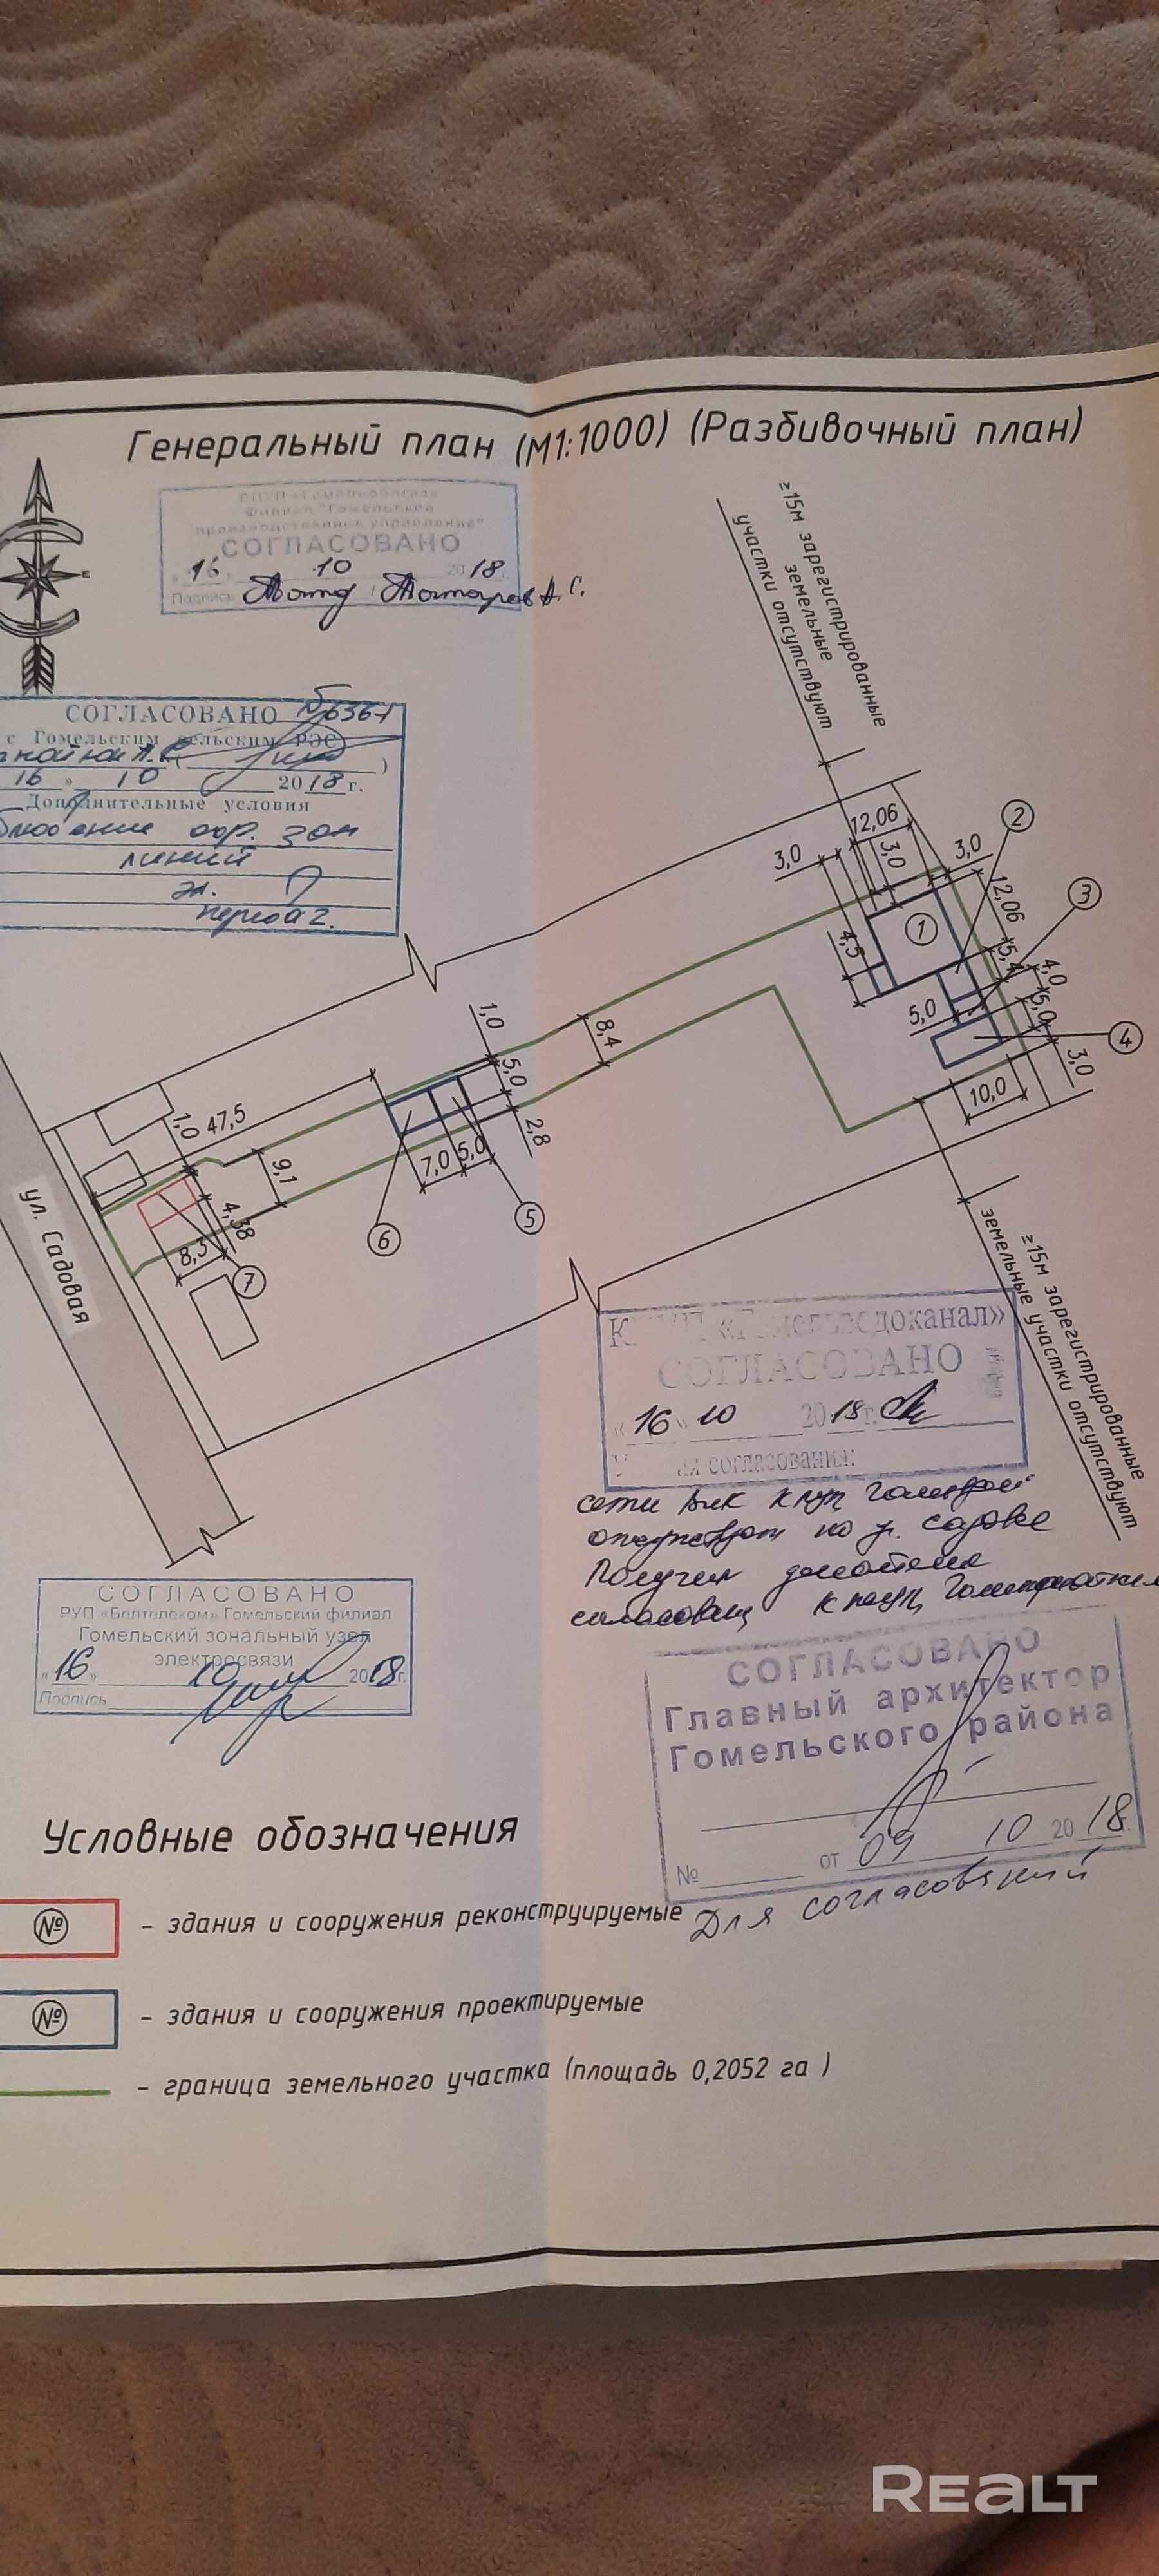 Генеральный план (М1:1000) (Разбивочный план)
Филиал "Гомельское
производственное управление"
СОГЛАСОВАНО
"16" 10 2018г.
Подпись
≥15м зарегистрированные
земельные
участки отсутствуют
E
СОГЛАСОВАНО №6361
с Гомельским сельским РЭС
16 " 10 2018г.
Дополнительные условия
охр. зон
линий
эл.
12,06
3,0
3,0
3,0
2
12,06
3
1
4,5
5,4
4,0
5,0
5,0
4
3,0
10,0
1,0
8,4
5,0
2,8
47,5
1,0
9,1
7,0
5,0
6
5
4,38
8,3
7
ул. Садовая
≥15м зарегистрированные
земельные участки отсутствуют
«Гомельводоканал»
СОГЛАСОВАНО
«16» 10 2018г.
согласования:
СОГЛАСОВАНО
РУП «Белтелеком» Гомельский филиал
Гомельский зональный узел
электросвязи
«16» 10 2018г.
Подпись
СОГЛАСОВАНО
Главный архитектор
Гомельского района
№ от 09 10 2018г.
Для согласований
Условные обозначения
№ - здания и сооружения реконструируемые
№ - здания и сооружения проектируемые
- граница земельного участка (площадь 0,2052 га )
REALT